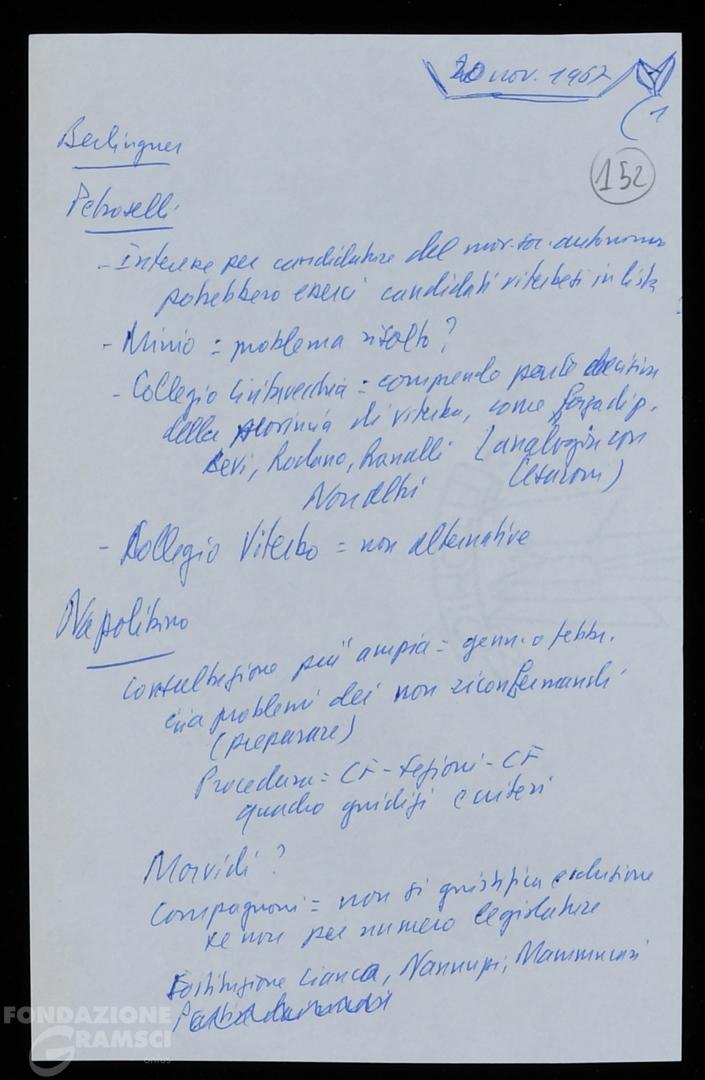 20 nov. 1967
(1
152
Berlinguer
Petroselli
- Interesse per candidature del mov. soc. autonomo
potrebbero esserci candidati viterbesi in lista
- Minio = problema risolto?
- Collegio Civitavecchia = comprende parte decisiva
della provincia di Viterbo, come forza di p.
Levi, Rodano, Ranalli (analogia con
Non altri Cesaroni)
- Collegio Viterbo = non alternative
Napolitano
consultazione più ampia = genn. o febbr.
problemi dei non riconfermandi
(preparare)
Procedura = CF - Sezioni - CF
quadro giudizi e criteri
Morvidi?
Compagnoni = non si giustifica esclusione
se non per numero legislature
Sostituzione Cianca, Nannuzzi, Mammucari
FONDAZIONE
GRAMSCI
onlus